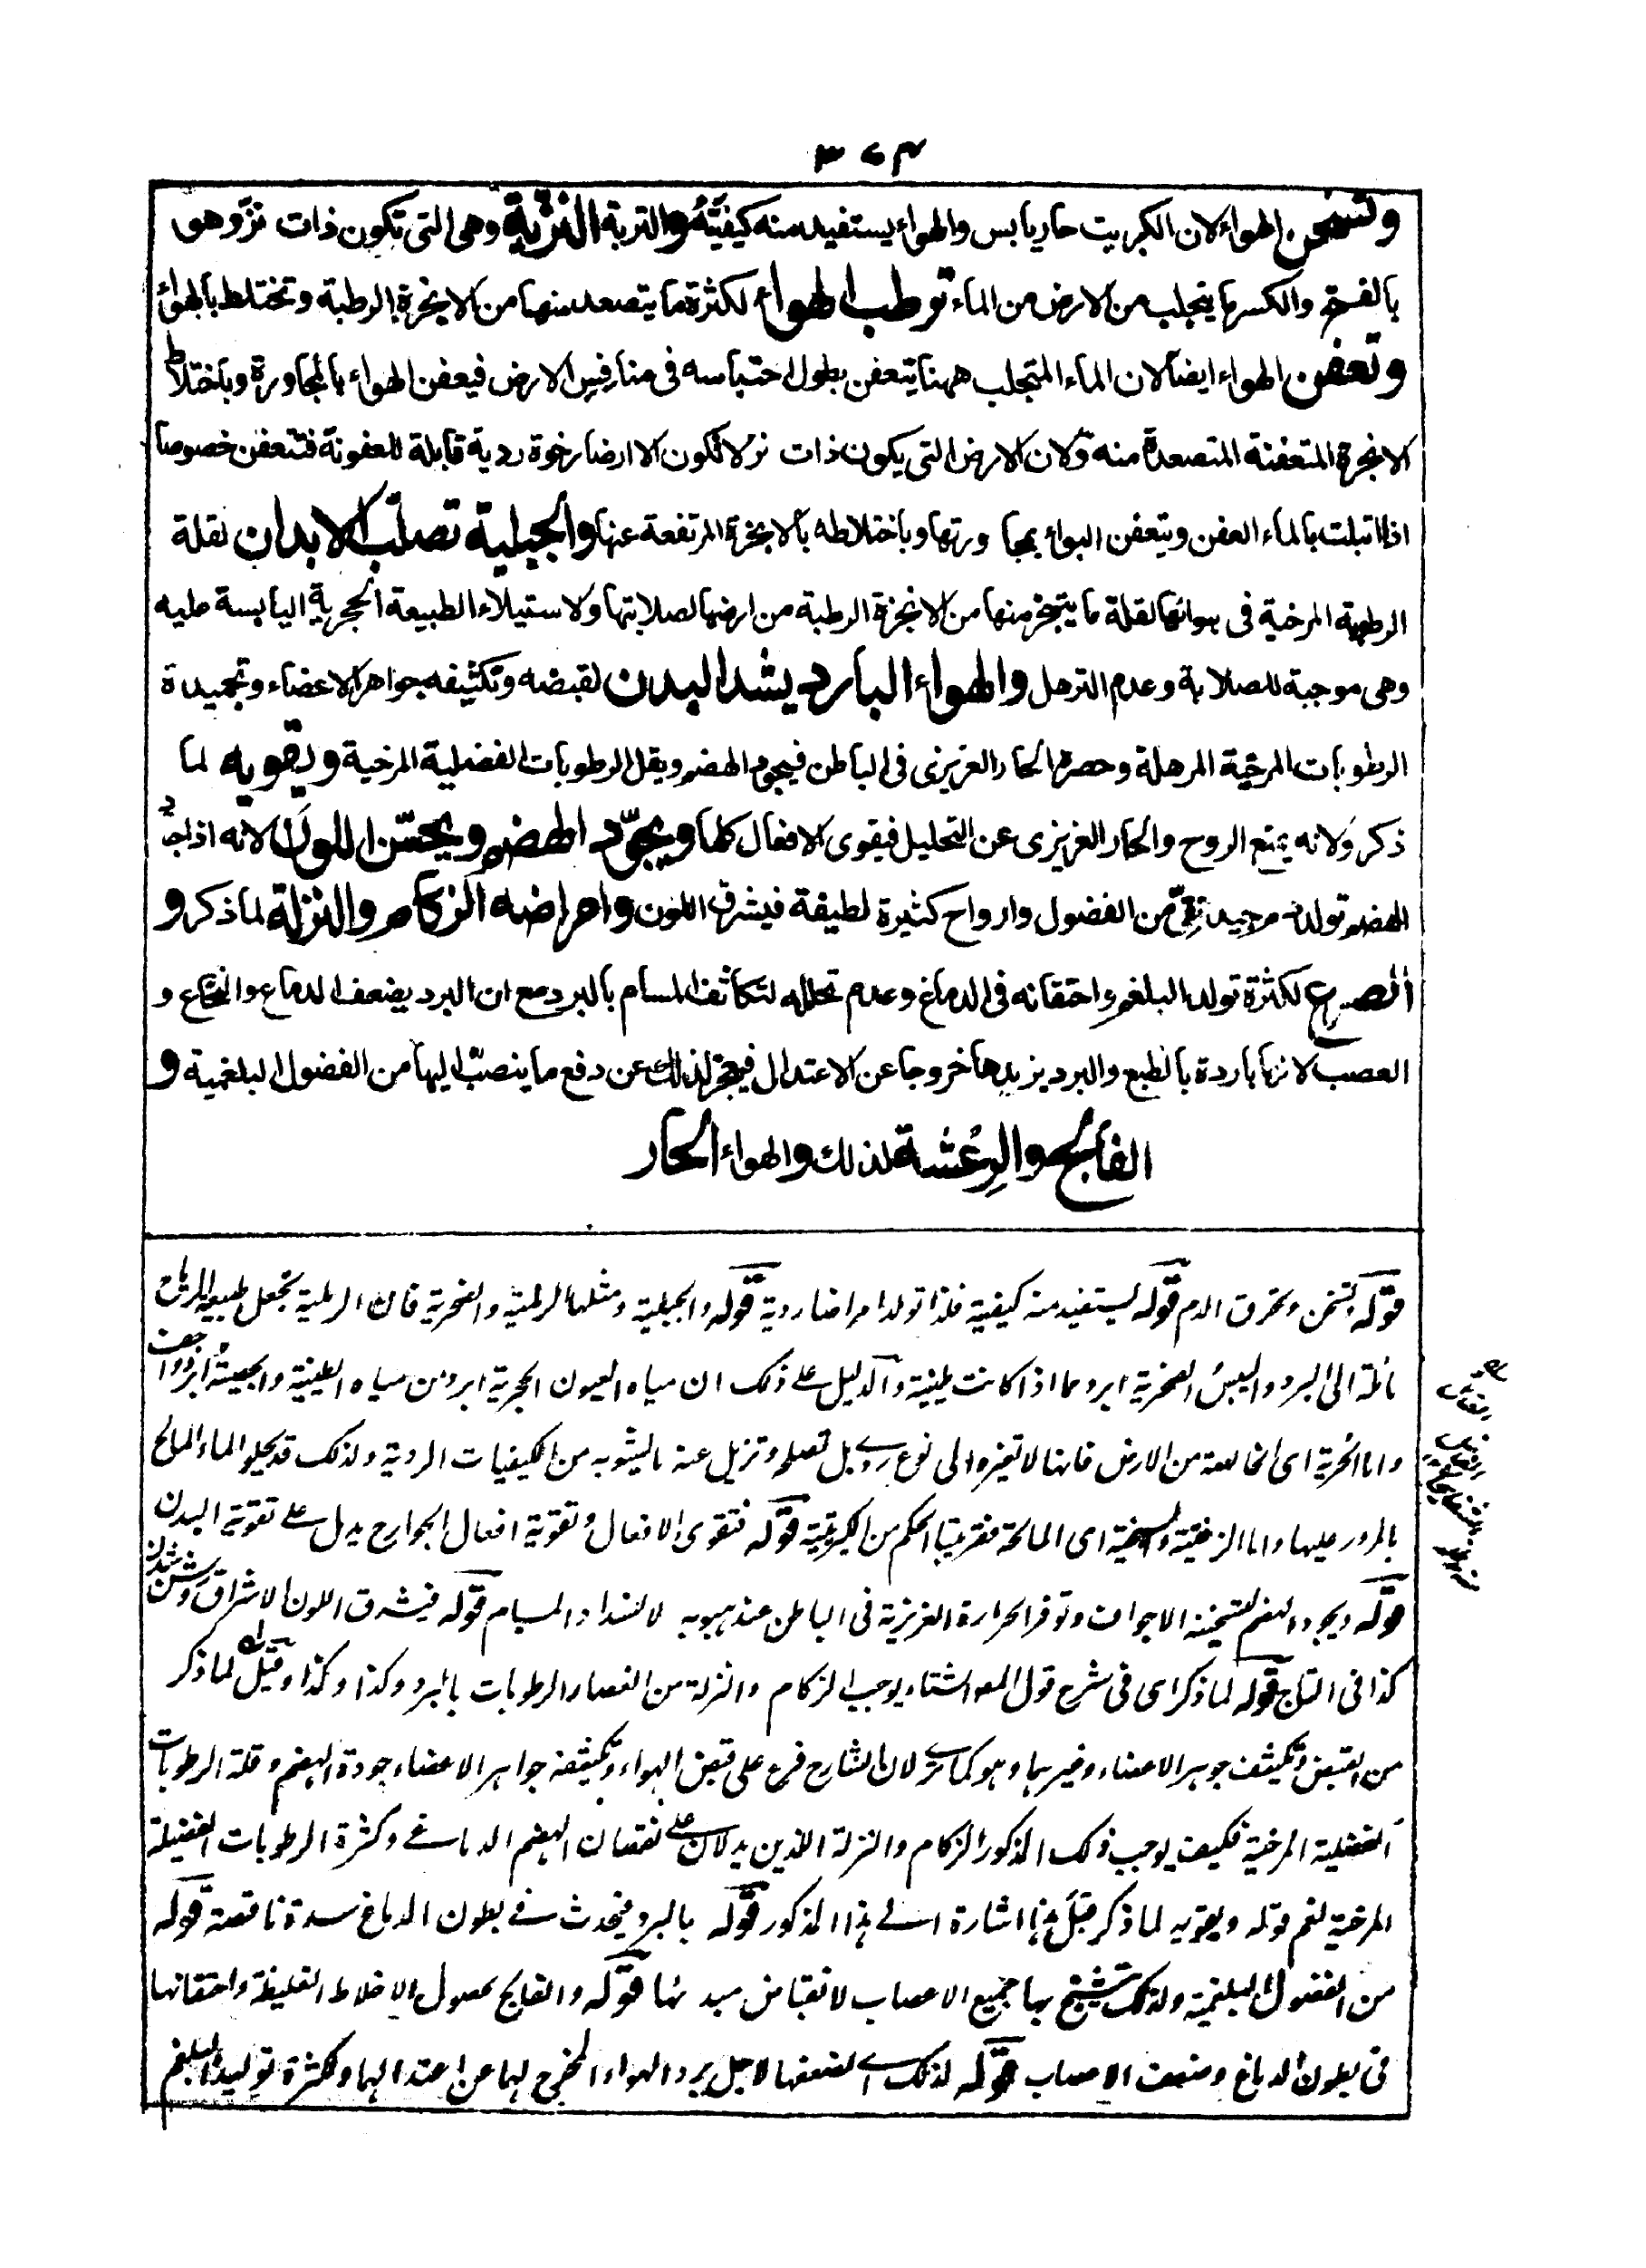 ٣٧٤
وتسخن الهواء لان الكبريت حار يابس والهواء يستفيد منه كيفيته والتربة النزية وهى التى تكون ذات نزّ وهو
بالفتح والكسر ما يتجلب من الارض من الماء توطب الهواء لكثرة ما يتصعد منها من الابخرة الرطبة وتختلط بالهواء
وتعفن الهواء ايضا لان الماء المتجلب ههنا يتعفن بطول احتباسه فى منافس الارض فيعفن الهواء بالمجاورة وباختلاط
الابخرة المتعفنة المتصعدة منه ولان الارض التى يكون ذات نز لا تكون الا ارضا رخوة ردية قابلة للعفونة فتتعفن خصوصا
اذا ابتلت بالماء العفن ويتعفن الهواء بمجاورتها وباختلاطه بالابخرة المرتفعة عنها والجبلية تصلب الابدان لقلة
الرطوبة المرخية فى هوائها لقلة ما يتبخر منها من الابخرة الرطبة من ارضها لصلابتها ولاستيلاء الطبيعة الحجرية اليابسة عليه
وهى موجبة للصلابة وعدم الترهل والهواء البارد يشد البدن لقبضه وتكثيفه جواهر الاعضاء وتجميدة
الرطوبات المرخية المرهلة وحصره الحار الغريزى فى الباطن فيجود الهضم ويقل الرطوبات الفضلية المرخية ويقويه لما
ذكر ولانه يمنع الروح والحار الغريزى عن التحليل فيقوى الافعال كلها ويجوّد الهضم ويحسّن اللون لانه اذا جاد
الهضم تولد دم جيد نقى من الفضول وارواح كثيرة لطيفة فيشرق اللون وامراضه الزكام والنزلة لما ذكر و
الصرع لكثرة تولد البلغم واحتقانه فى الدماغ وعدم تحلله لتكاثف المسام بالبرد مع ان البرد يضعف الدماغ والنخاع و
العصب لانها باردة بالطبع والبرد يزيدها خروجا عن الاعتدال فيعجز لذلك عن دفع ما ينصبّ اليها من الفضول البلغمية و
الفالج والرعشة لذلك والهواء الحار
قوله تسخن وتحرق الدم قوله يستفيد منه كيفية فلذا تولد امراضا ردية قوله والجبلية ومثلها الرملية والصخرية فان الرملية تجعل طبيعة المياه
مائلة الى البرد واليبس الصخرية ابرد مما اذا كانت طينية والدليل على ذلك ان مياه العيون الحجرية ابرد من مياه الطينية والجصية ابرد واجفف
واما الحرية اى الخالصة من الارض فانها لا تغيره الى نوع ردى بل تصلح وتزيل عنه ما يشوبه من الكيفيات الردية ولذلك قد يحلو الماء المالح
بالمرور عليها واما الزفتية والسبخية اى المالحة فقريبتا الحكم من الكبريتية قوله فتقوى الافعال وتقوية افعال الجوارح يدل على تقوية البدن
قوله ويجود الهضم لتسخينه الاجواف وتوفر الحرارة الغريزية فى الباطن عند هبوبه لانسداد المسام قوله فيشرق اللون الاشراق روشن شدن
كذا فى التاج قوله لما ذكر اى فى شرح قول المص الشتاء يوجب الزكام والنزلة من انعصار الرطوبات بالبرد وكذا وكذا وقيل لما ذكر
من القبض وتكثيف جوهر الاعضاء وغيرهما وهو كما ترى لان الشارح فرع على قبض الهواء وتكثيفه جواهر الاعضاء جودة الهضم وقلة الرطوبات
الفضلية المرخية فكيف يوجب ذلك المذكور الزكام والنزلة اللذين يدلان على نقصان الهضم الدماغى وكثرة الرطوبات الفضيلة
المرخية نعم قوله ويقويه لما ذكر قبل هذا اشارة الى هذا المذكور قوله بالبرد فيحدث فى بطون الدماغ سدة ناقصة قوله
من الفضول البلغمية ولذلك تتشنج بها جميع الاعصاب لانقباض مبدئها قوله والفالج لحصول الاخلاط الغليظة واحتقانها
فى بطون الدماغ وضعف الاعصاب قوله لذلك اى لضعفها لاجل برد الهواء المخرج لها عن اعتدالها ولكثرة توليد البلغم